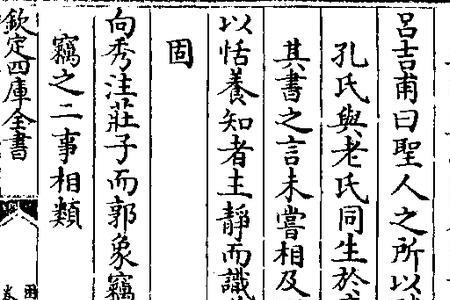 呂吉甫曰聖人之所以
孔氏與老氏同生於
其書之言未嘗相及
以恬養知者主靜而識
固
向秀注莊子而郭象竊
竊之二事相類
欽定四庫全書